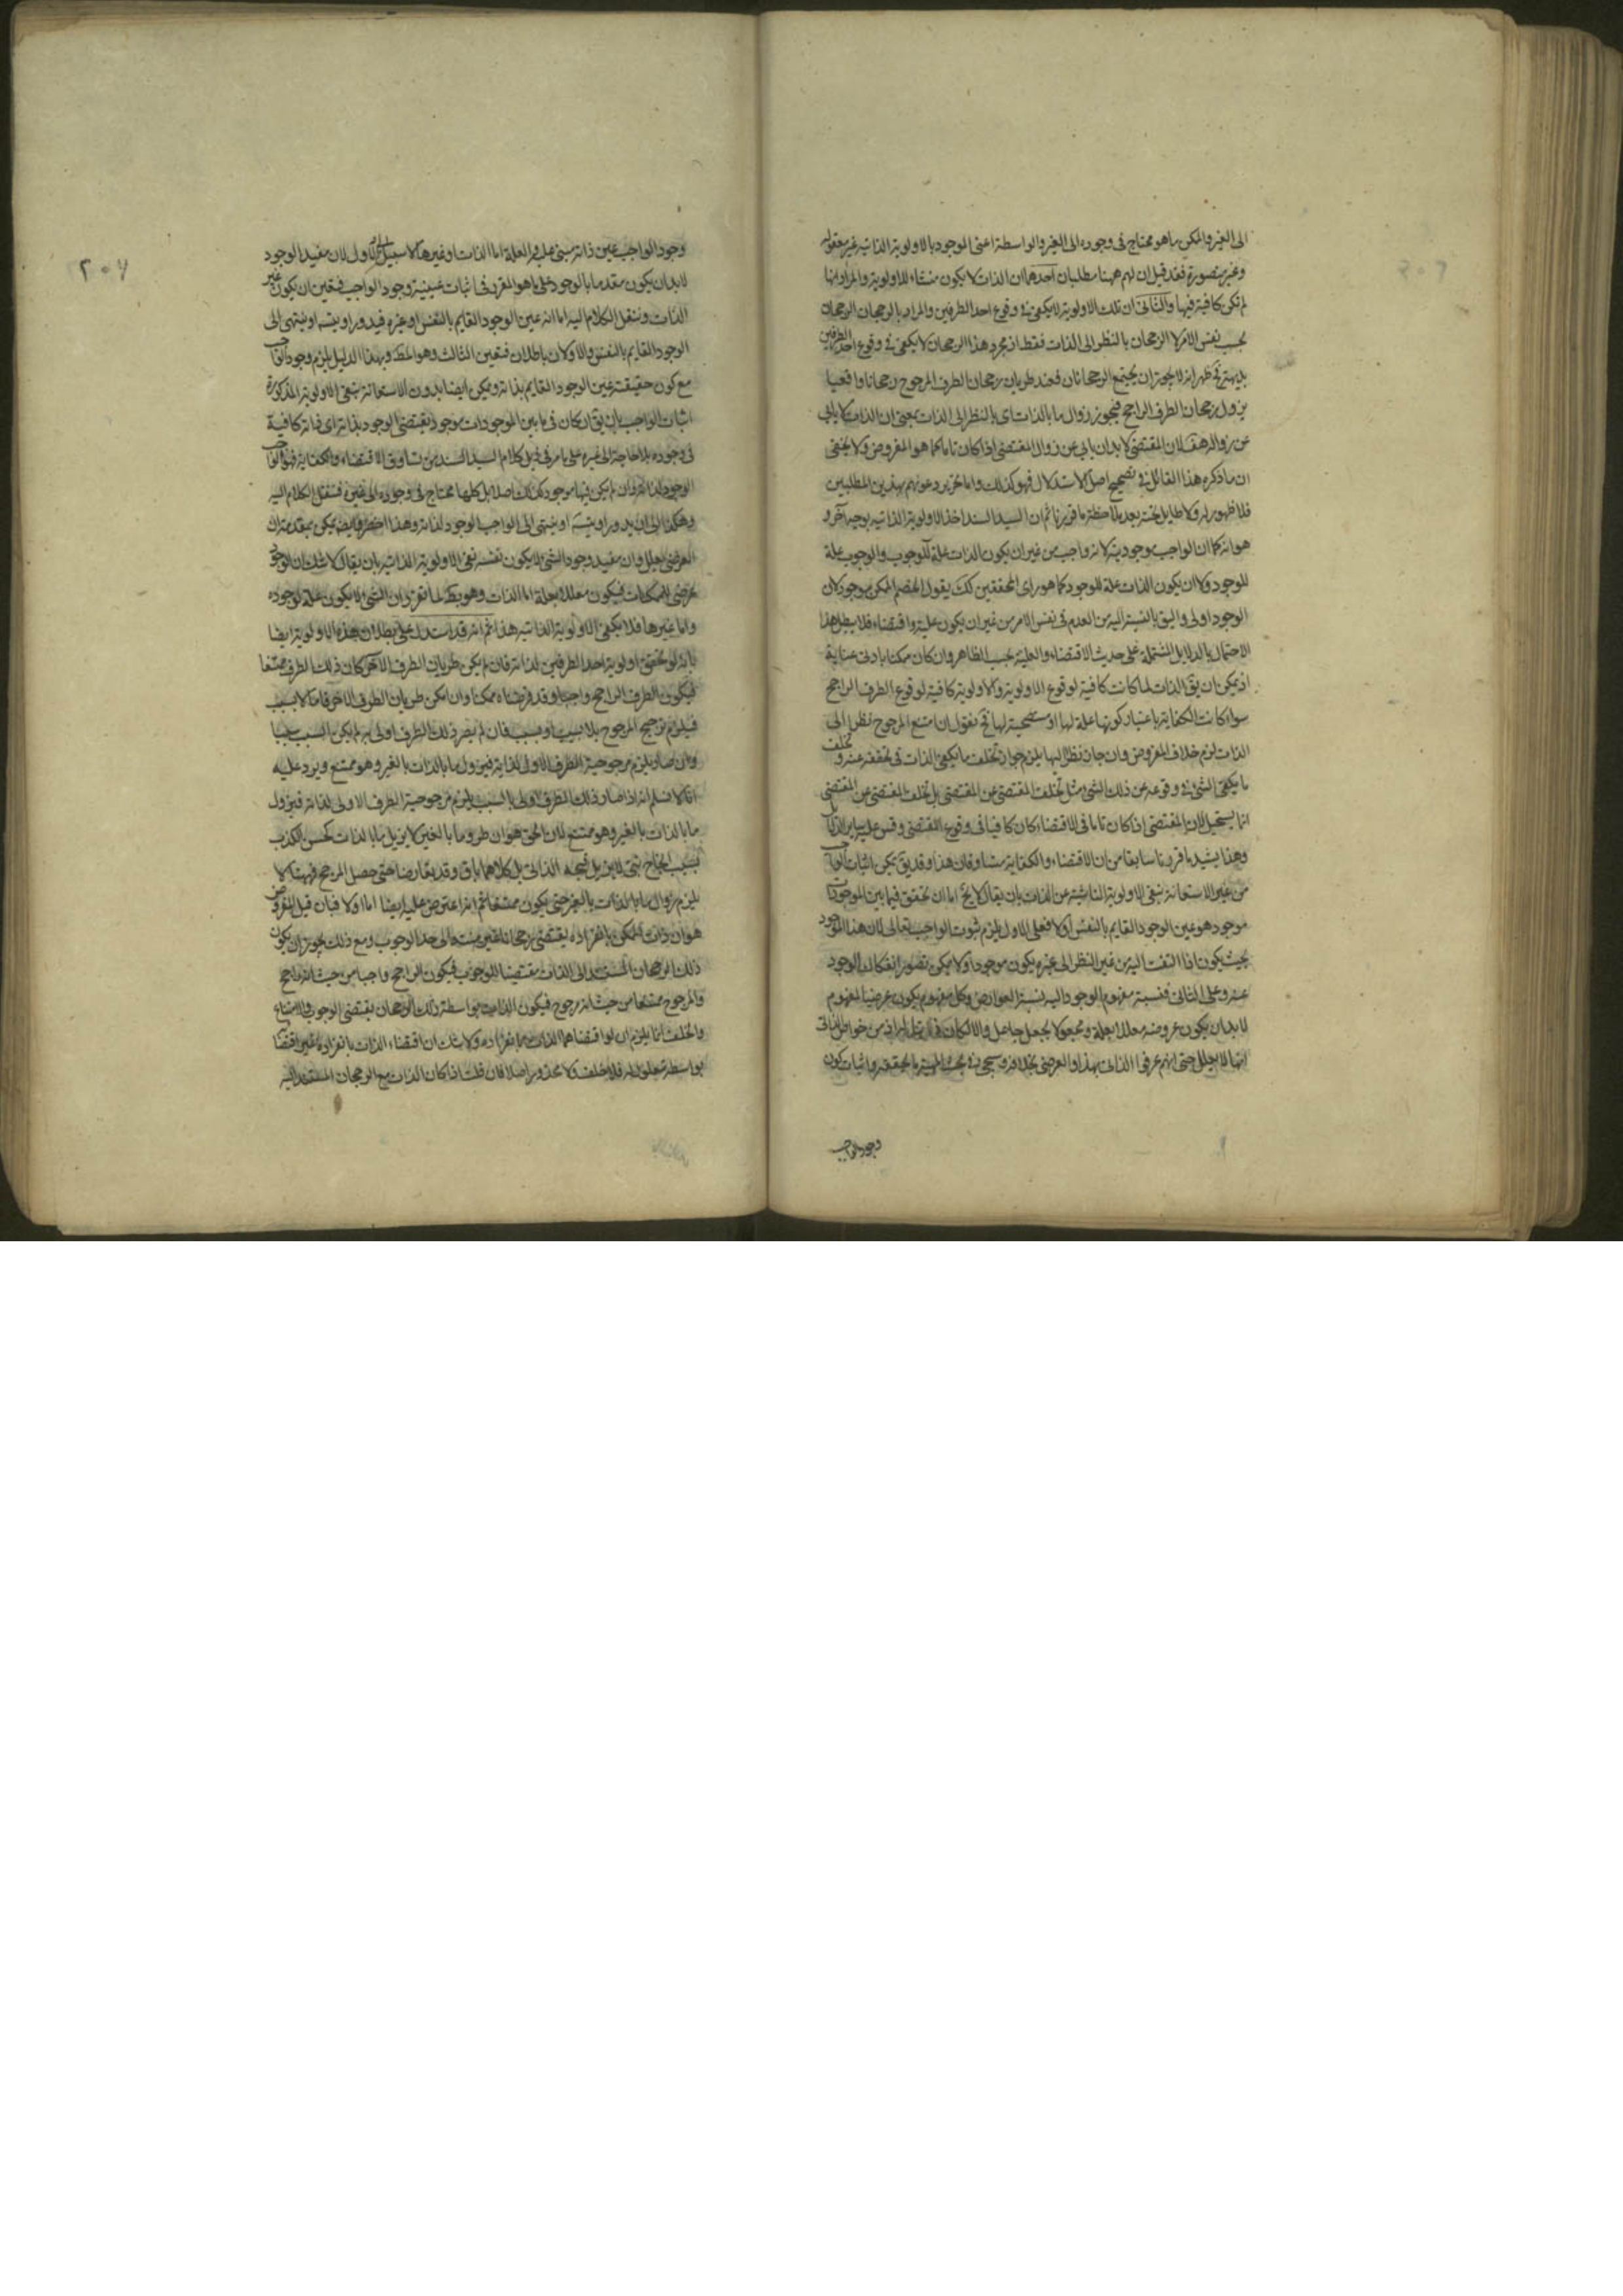 الى الغير والممكن ما هو محتاج في وجوده الى الغير والواسطة اعنى الموجود بالاولوية الذاتية غير معقوله
وغير متصورة فقد قيل ان لهم ههنا مطلبان احدهما ان الذات لا يكون منشاء للاولوية والمراد انها
لم تكن كافية فيها والثاني ان تلك الاولوية لا يكفي في وقوع احد الطرفين والمراد بالرجحان الرجحان
بحسب نفس الامر لا الرجحان بالنظر الى الذات فقط اذ مجرد هذا الرجحان لا يكفي في وقوع احد الطرفين
بديهة فح ظهر انه لا يجوز ان يجتمع الرجحانان فعند طريان رجحان الطرف المرجوح رجحانا واقعيا
يزول رجحان الطرف الراجح فيجوز زوال ما بالذات اى بالنظر الى الذات بمعنى ان الذات لا يابى
عن زواله هف لان المقتضى لا بد ان يابى عن زوال المقتضى اذا كان تاما كما هو المفروض ولا يخفى
ان ما ذكره هذا القائل في تصحيح اصل الاستدلال فهو كذلك واما تحرير دعوتهم بهذين المطلبين
فلا ظهور له ولا طايل تحته بعد ملاحظة ما قررنا ثم ان السيد السند اخذ الاولوية الذاتية بوجه آخر و
هو انه كما ان الواجب موجود بذاته واجب من غير ان يكون الذات علة للوجوب والوجوب علة
للوجود ولا ان يكون الذات علة للوجود كما هو راى المحققين كك يقول الخصم الممكن موجود لان
الوجود اولى واليق بالنسبة اليه من العدم في نفس الامر من غير ان يكون علية واقتضاء فلا يبطل هذا
الاحتمال بالدلايل المشتملة على حديث الاقتضاء والعلية بحسب الظاهر وان كان ممكنا بادنى عناية
اذ يمكن ان يق الذات لما كانت كافية لوقوع الاولوية والاولوية كافية لوقوع الطرف الراجح
سواء كانت الكفاية باعتبار كونها علة لها او مستتبعة لها فح نقول ان امتنع المرجوح نظرا الى
الذات لزم خلاف المفروض وان جاز نظرا اليها يلزم جواز تخلف ما يكفي الذات في تحققه عنه و تخلف
ما يكفي الشيء في وقوعه عن ذلك الشيء مثل تخلف المقتضى عن المقتضى بل تخلف المقتضى عن المقتضى
انما يستحيل لان المقتضى اذا كان تاما في الاقتضاء كان كافيا في وقوع المقتضى وقس عليه
وهذا يشيد ما قررنا سابقا من ان الاقتضاء والكفاية متساوقان هذا وقد يق يمكن اثبات الواجب
من غير الاستعانة بنفي الاولوية الناشية عن الذات بان يقال لا يخ اما ان تحقق فيما بين الموجودات
موجود هو عين الوجود القايم بالنفس اولا فعلى الاول يلزم ثبوت الواجب تعالى لان هذا الموجود
بحيث يكون اذا التفت اليه من غير النظر الى غيره يكون موجودا ولا يمكن تصور انفكاك الوجود
عنه وعلى الثاني فنسبة مفهوم الوجود اليه نسبة العوارض وكل مفهوم يكون عرضيا لمفهوم
لا بد ان يكون عروضه معللا بعلة ومجعولا بجعل جاعل والا لكان ذاتيا من خواص الذاتي
انها لا يعلل حتى انهم عرفوا الذاتي بهذا والعرضي بخلافه وسيجئ في بحث المهية ما يحققه واثبات كون
وجود الواجب
وجود الواجب عين ذاته مبنى عليه فالعلة اما الذات او غيرها لا سبيل الى الاول لان مفيد الوجود
لا بد ان يكون متقدما بالوجود على ما هو المقرر في اثبات عينية وجود الواجب فتعين ان يكون غير
الذات وننقل الكلام اليه اما انه عين الوجود القايم بالنفس او غيره فيدور او يتسه او ينتهى الى
الوجود القايم بالنفس والاولان باطلان فتعين الثالث وهو المط وبهذا الدليل يلزم وجود الواجب
مع كون حقيقته عين الوجود القايم بذاته ويمكن ايضا بدون الاستعانة بنفي الاولوية المذكورة
اثبات الواجب بان يق ان كان في ما بين الموجودات موجود يقتضى الوجود بذاته اى ذاته كافية
في وجوده بلا حاجة الى غيره على ما مر في ذيل كلام السيد السند من تساوق الاقتضاء والكفاية فهو الواجب
الوجود لذاته وان لم يكن فيها موجود كذلك اصلا بل كلها محتاج في وجوده الى غيره فننقل الكلام اليه
وهكذا الى ان يدور او يتسه او ينتهى الى الواجب الوجود لذاته وهذا اخصر وايضا يمكن بمقدمة ان
العرضي يعلل وان مفيد وجود الشيء لا يكون نفسه نفي الاولوية الذاتية بان يقال لا شك ان الوجود
عرضي للممكنات فيكون معللا بعلة اما الذات وهو بط لما تقرر ان الشيء لا يكون علة لوجوده
واما غيرها فلا يكفي الاولوية الذاتية هذا ثم انه قد استدل على بطلان هذه الاولوية ايضا
بانه لو تحقق اولوية احد الطرفين لذاته فان لم يمكن طريان الطرف الآخر كان ذلك الطرف ممتنعا
فيكون الطرف الراجح واجبا وقد فرضناه ممكنا وان امكن طريان الطرف الآخر فاما لا بسبب
فيلزم ترجيح المرجوح بلا سبب او بسبب فان لم يصر ذلك الطرف اولى به لم يكن السبب سببا
وان صار يلزم مرجوحية الطرف الاولى لذاته فيزول ما بالذات بالغير وهو ممتنع ويرد عليه
انا لا نسلم انه اذا صار ذلك الطرف اولى بالسبب يلزم مرجوحية الطرف الاولى لذاته فيزول
ما بالذات بالغير وهو ممتنع لان الحق هو ان طرو ما بالغير لا يزيل ما بالذات كحسن الكذب
بسبب انجاح نبى لا يزيل قبحه الذاتي بل كلاهما باق وقد يعارضا حتى حصل المرجح فههنا لا
يلزم زوال ما بالذات بالغير حتى يكون ممتنعا ثم انه اعترض عليه ايضا اما اولا فبان قيل المفروض
هو ان ذات الممكن بانفراده يقتضى رجحانا غير منته الى حد الوجوب ومع ذلك يجوز ان يكون
ذلك الرجحان المستند الى الذات مقتضيا للوجوب فيكون الراجح واجبا من حيث انه راجح
والمرجوح ممتنعا من حيث انه مرجوح فيكون الذات بواسطة ذلك الرجحان يقتضى الوجوب والامتناع
والخلف انما يلزم ان لو اقتضاهما الذات بانفراده ولا شك ان اقتضاء الذات بانفراده غير اقتضا
بواسطة معلول له فلا خلف ولا محذور اصلا فان قلت اذا كان الذات مع الرجحان المستند اليه
٢٠٧